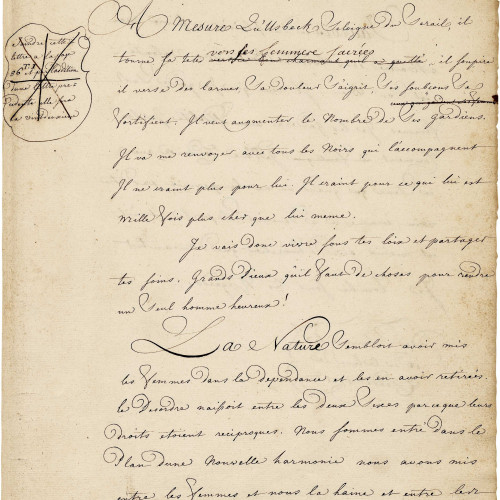 A Mesure Qu'Usbeck Seloigne du Serail, il
tourne sa tete vers ses femmes sacrées
il soupire
il verse des larmes, sa douleur S'aigrit, Ses soubcons Se
fortifient. Il veut augmenter le Nombre de Ses Gardiens.
Il va me renvoyer avec tous les Noirs qui l'accompagnent
Il ne craint plus pour lui. Il craint pour ce qui lui est
mille fois plus cher que lui meme.
Je vais donc vivre sous tes loix et partager
tes soins. Grands Dieux qu'il faut de choses pour rendre
un Seul homme heureux!
La Nature Sembloit avoir mis
les femmes dans la dependance et les en avoir retirées.
le Desordre naissoit entre les deux Sexes parceque leurs
droits etoient reciproques. Nous sommes entré dans le
Plan d'une Nouvelle harmonie nous avons mis
entre les femmes et nous la haine et entre leur